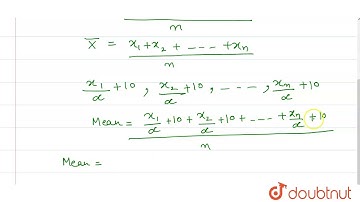 n
X̄ = x₁+x₂+ ---- +xₙ
n
x₁/α +10 , x₂/α +10 , - - - , xₙ/α +10
Mean = x₁/α +10 + x₂/α +10 + ---- + xₙ/α +10
n
Mean =
doubtnut